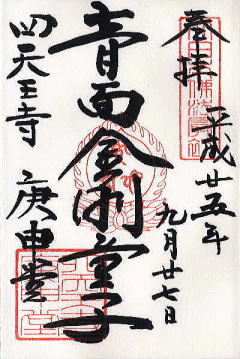 奉拝
平成廿五年
九月廿七日
青面金剛童子
四天王寺
庚申堂